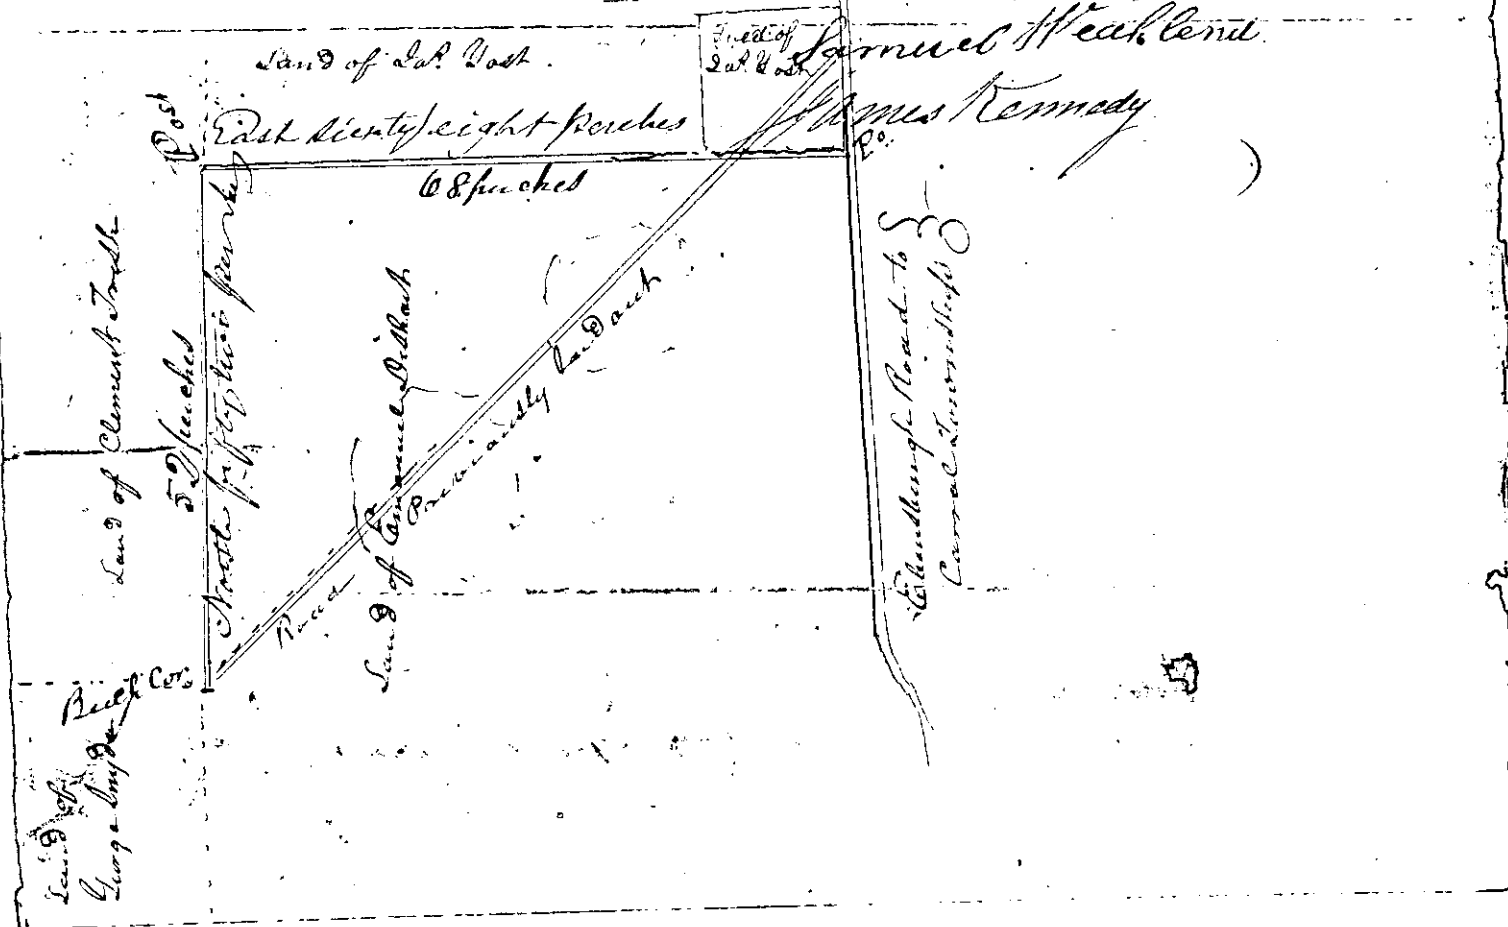 Land of Jac. Yost.
Tract of
Jac. Yost
Samuel Weakland
James Kennedy
Post
East sixty eight perches
68 perches
Po.
Land of Clement
52 perches
North fifty two perches
Land of Emanuel Dishart
Road Previously laid out
Ebensburgh Road to
Carral Township
Beech Cor.
Land of
George Snyder